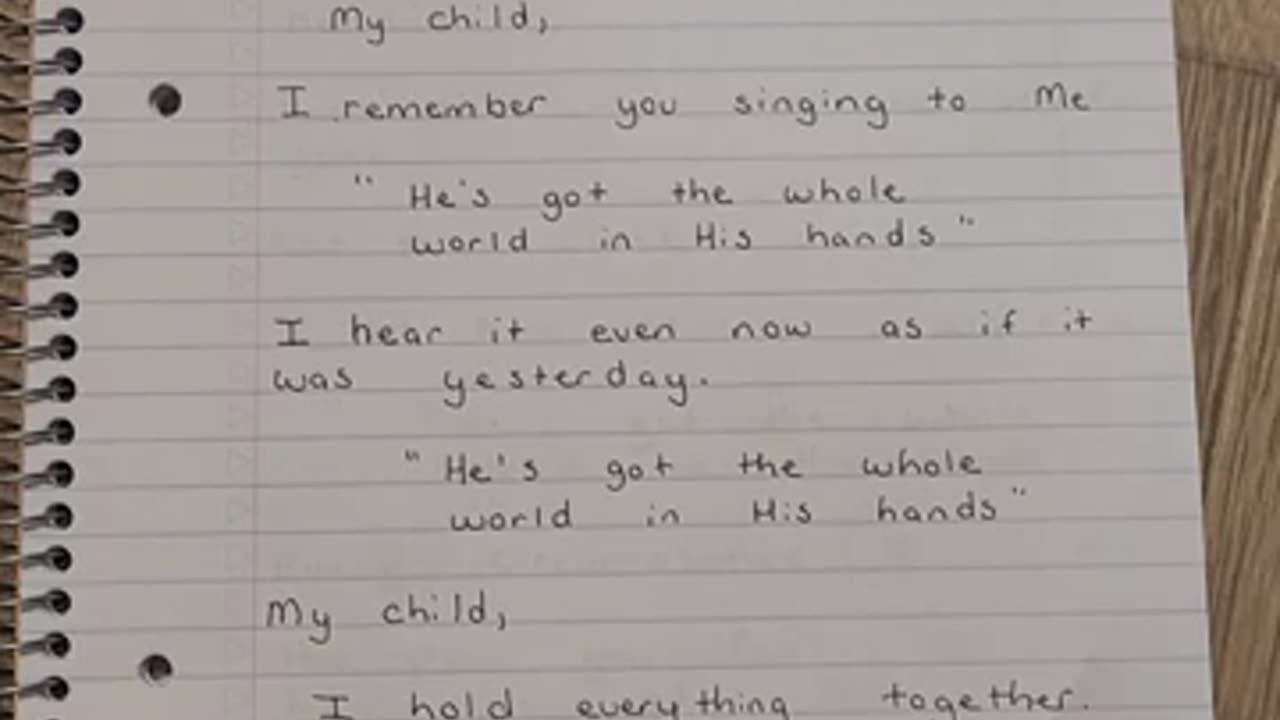 My child,
I remember you singing to Me
" He's got the whole
world in His hands "
I hear it even now as if it
was yesterday.
" He's got the whole
world in His hands "
My child,
I hold everything together.